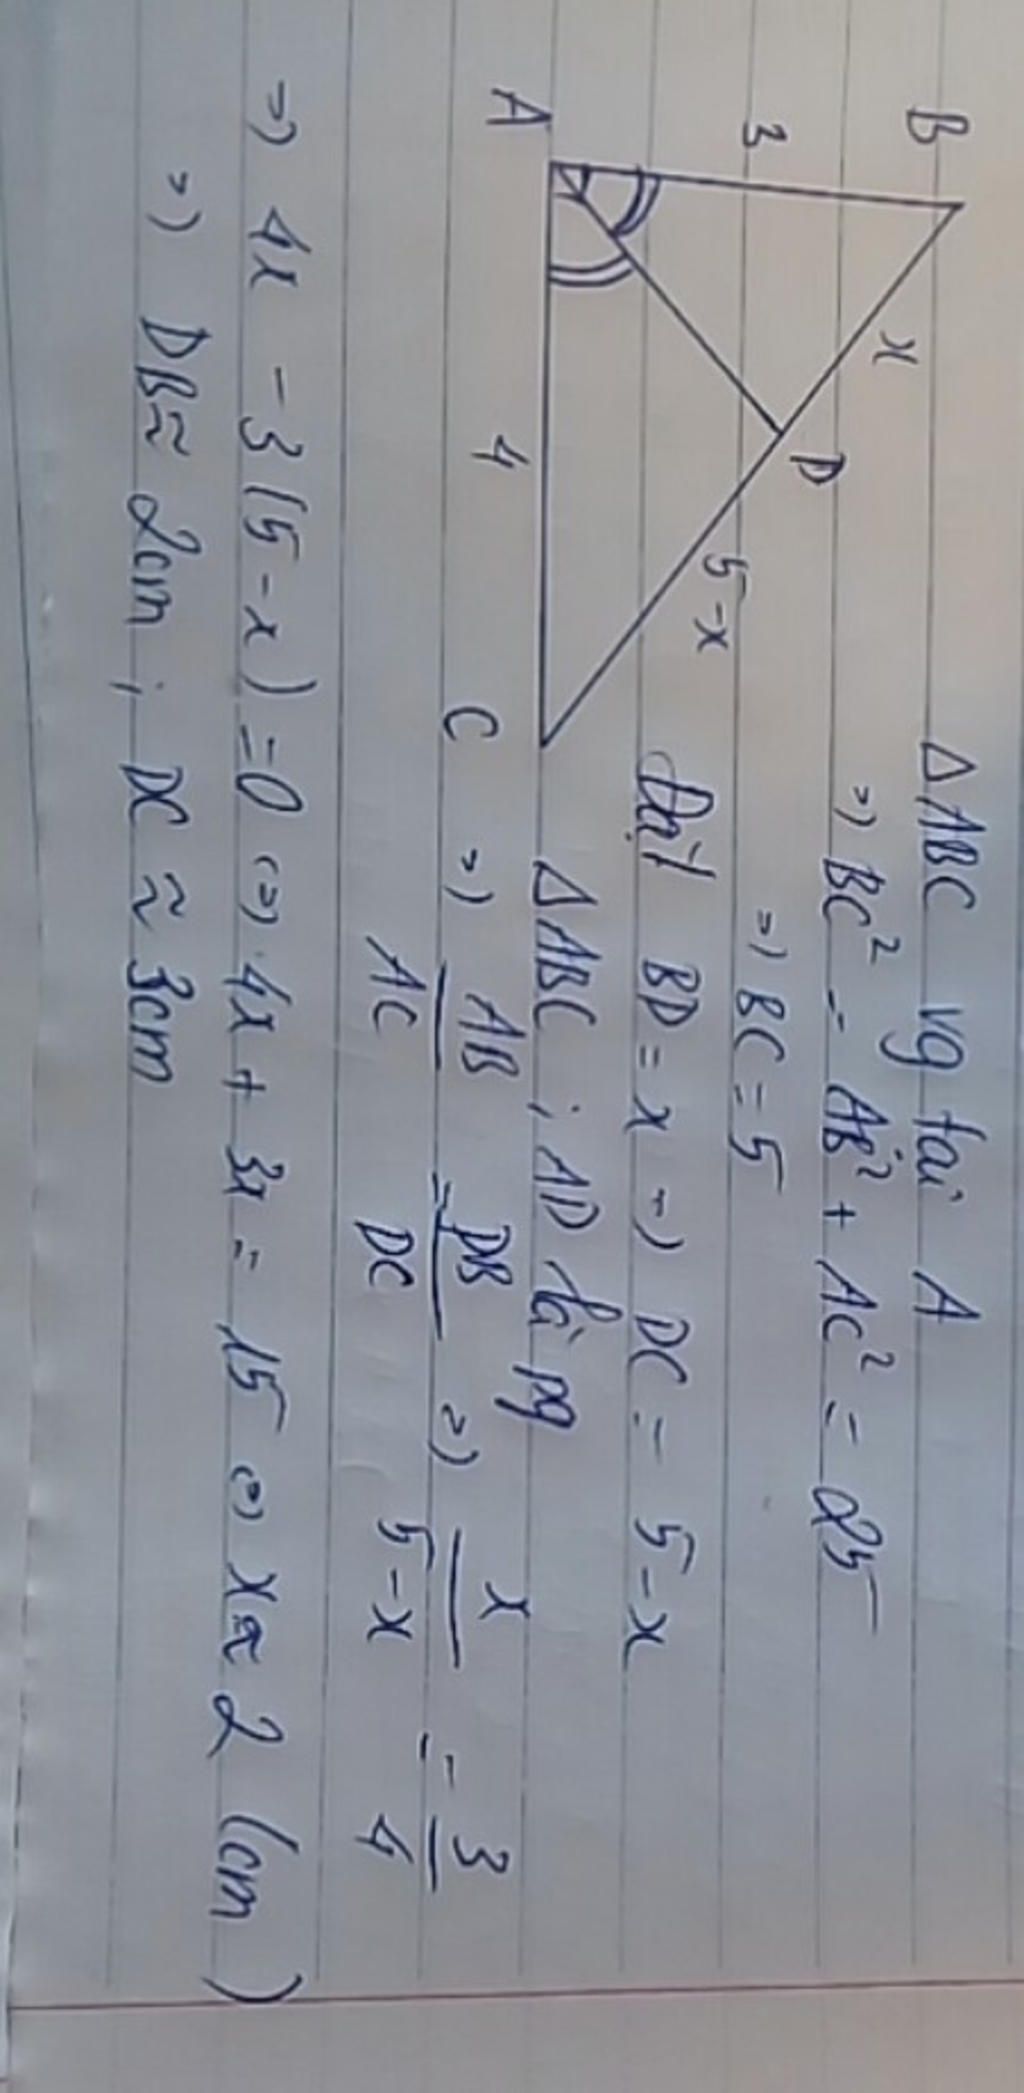 B
3
A
x
D
5-x
4
C
Δ ABC vg tại A
=) BC² = AB² + AC² = 25
=) BC = 5
Đặt BD = x =) DC = 5-x
Δ ABC ; AD là pg
=) AB/AC = DB/DC =) x/5-x = 3/4
=) 4x - 3(5-x) = 0 (=) 4x + 3x = 15 (=) x ≈ 2 (cm)
=) DB ≈ 2cm ; DC ≈ 3cm